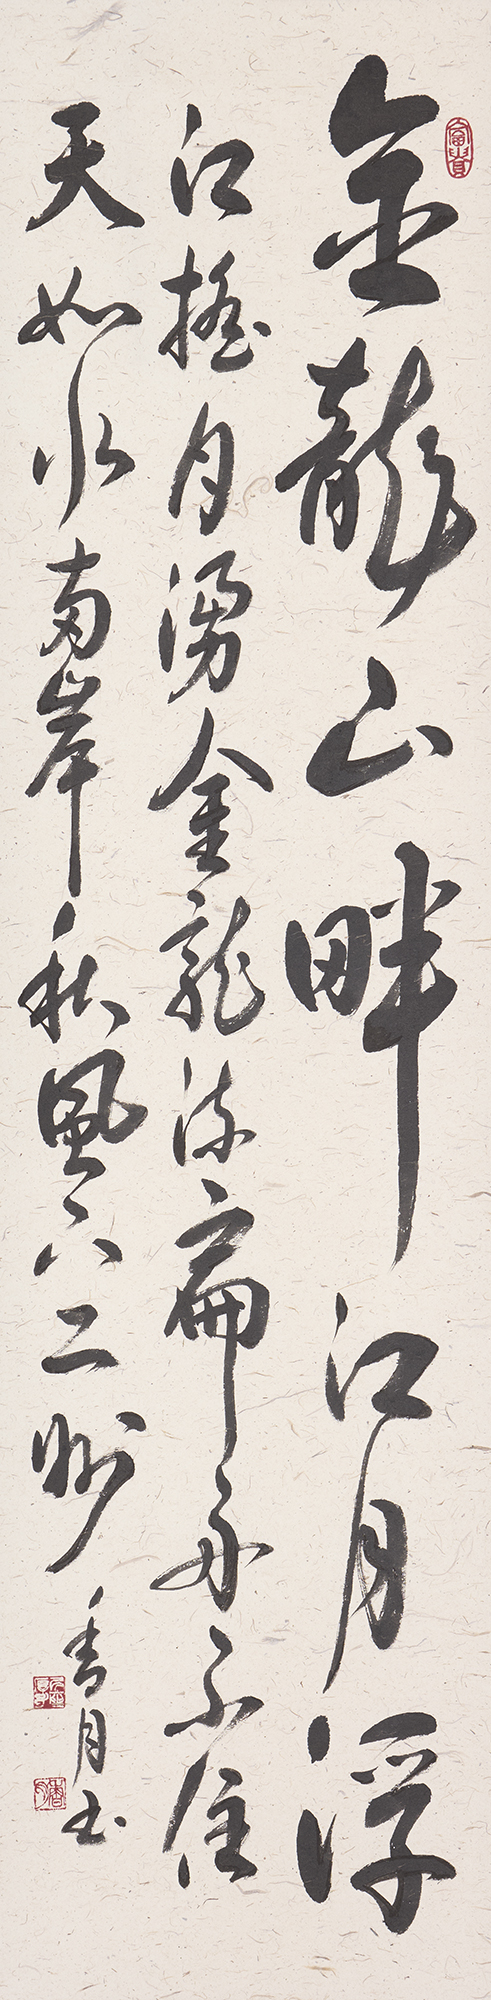 金龍山畔江月浮
江搖月湧金龍流扁舟不住
天如水両岸秋風下二州
香月書